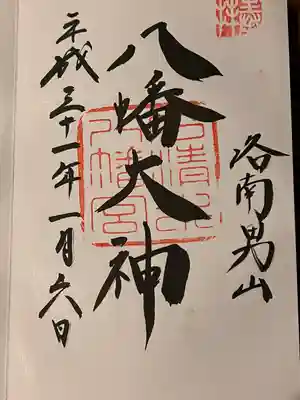 洛南男山
八幡大神
石清水
八幡宮
平成三十一年一月六日